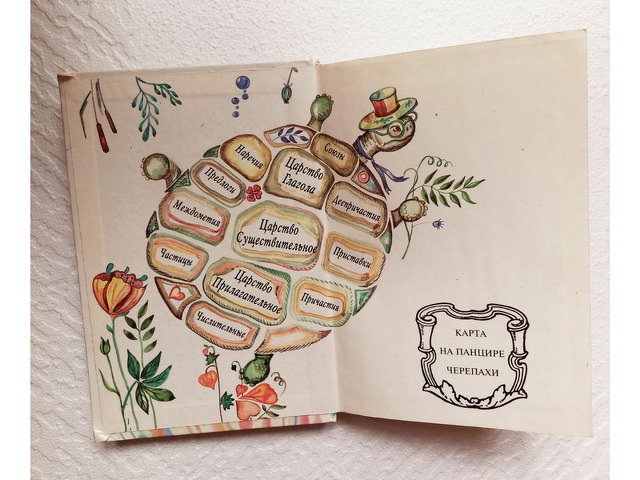 Наречия
Союзы
Царство
Глагола
Предлоги
Деепричастия
Междометия
Царство
Существительное
Приставки
Частицы
Царство
Прилагательное
Причастия
Числительные
КАРТА
НА ПАНЦИРЕ
ЧЕРЕПАХИ